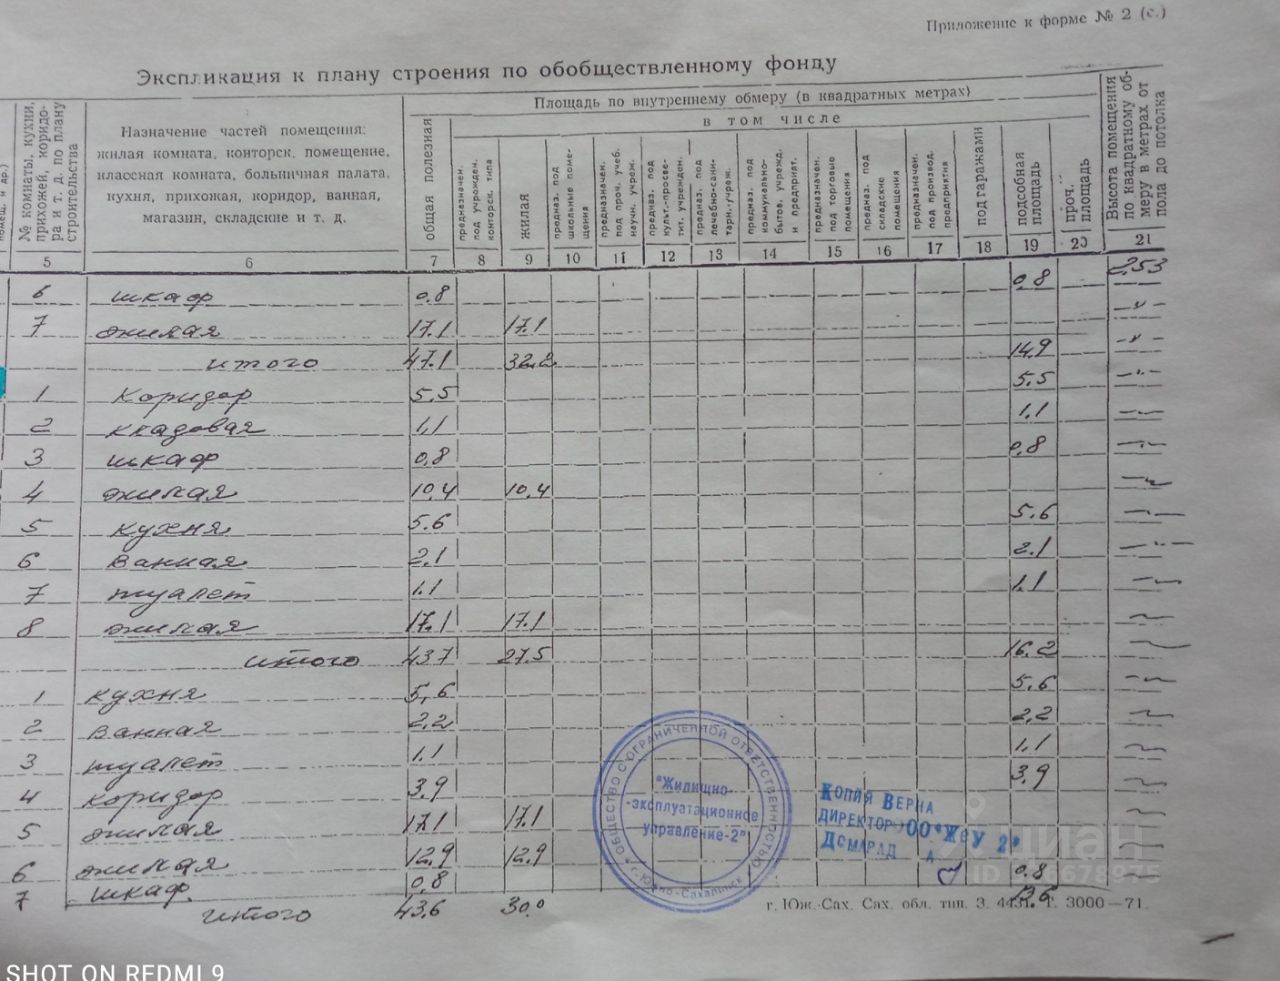 Приложение к форме № 2 (с.)
Экспликация к плану строения по обобществленному фонду
помещ. и др.)
№ комнаты, кухни, прихожей, коридора и т. д. по плану строительства
Назначение частей помещения:
жилая комната, конторск. помещение,
классная комната, больничная палата,
кухня, прихожая, коридор, ванная,
магазин, складские и т. д.
Площадь по внутреннему обмеру (в квадратных метрах)
в том числе
общая полезная
предназначен. под учрежден. конторск. типа
жилая
предназ. под школьные помещения
предназначен. под проч. учеб. научн. учреж.
предназ. под культ.-просвет. учрежден.
предназ. под лечебно-санитарн. учреж.
предназ. под коммунально-бытов. учрежд. и предприят.
предназначен. под торговые помещения
предназ. под складские помещения
предназначен. под производ. предприятия
под гаражами
подсобная площадь
проч. площадь
Высота помещения по квадратному обмеру в метрах от пола до потолка
5 6 7 8 9 10 11 12 13 14 15 16 17 18 19 20 21
6 шкаф 0,8 0,8 2,53
7 жилая 17.1 17.1 -"-
итого 47.1 32.2 14,9 -"-
1 коридор 5.5 5.5 -"-
2 кладовая 1,1 1.1
3 шкаф 0,8 0,8
4 жилая 10,4 10,4
5 кухня 5.6 5.6
6 ванная 2.1 2.1
7 туалет 1.1 1.1
8 жилая 17.1 17.1
итого 43.7 27.5 16.2
1 кухня 5,6 5.6
2 ванная 2,2 2,2
3 туалет 1.1 1.1
4 коридор 3,9 3,9
5 жилая 17.1 17.1
6 жилая 12,9 12,9
7 шкаф. 0,8 0,8
итого 43,6 30.0 13.6
ОБЩЕСТВО С ОГРАНИЧЕННОЙ ОТВЕТСТВЕННОСТЬЮ
г. Южно-Сахалинск
"Жилищно-
-эксплуатационное
управление-2"
КОПИЯ ВЕРНА
ДИРЕКТОР ООО "ЖЭУ 2"
ДОМАРАД А
циан
г. Юж.-Сах. Сах. обл. тип. З. Т. 3000—71.
SHOT ON REDMI 9